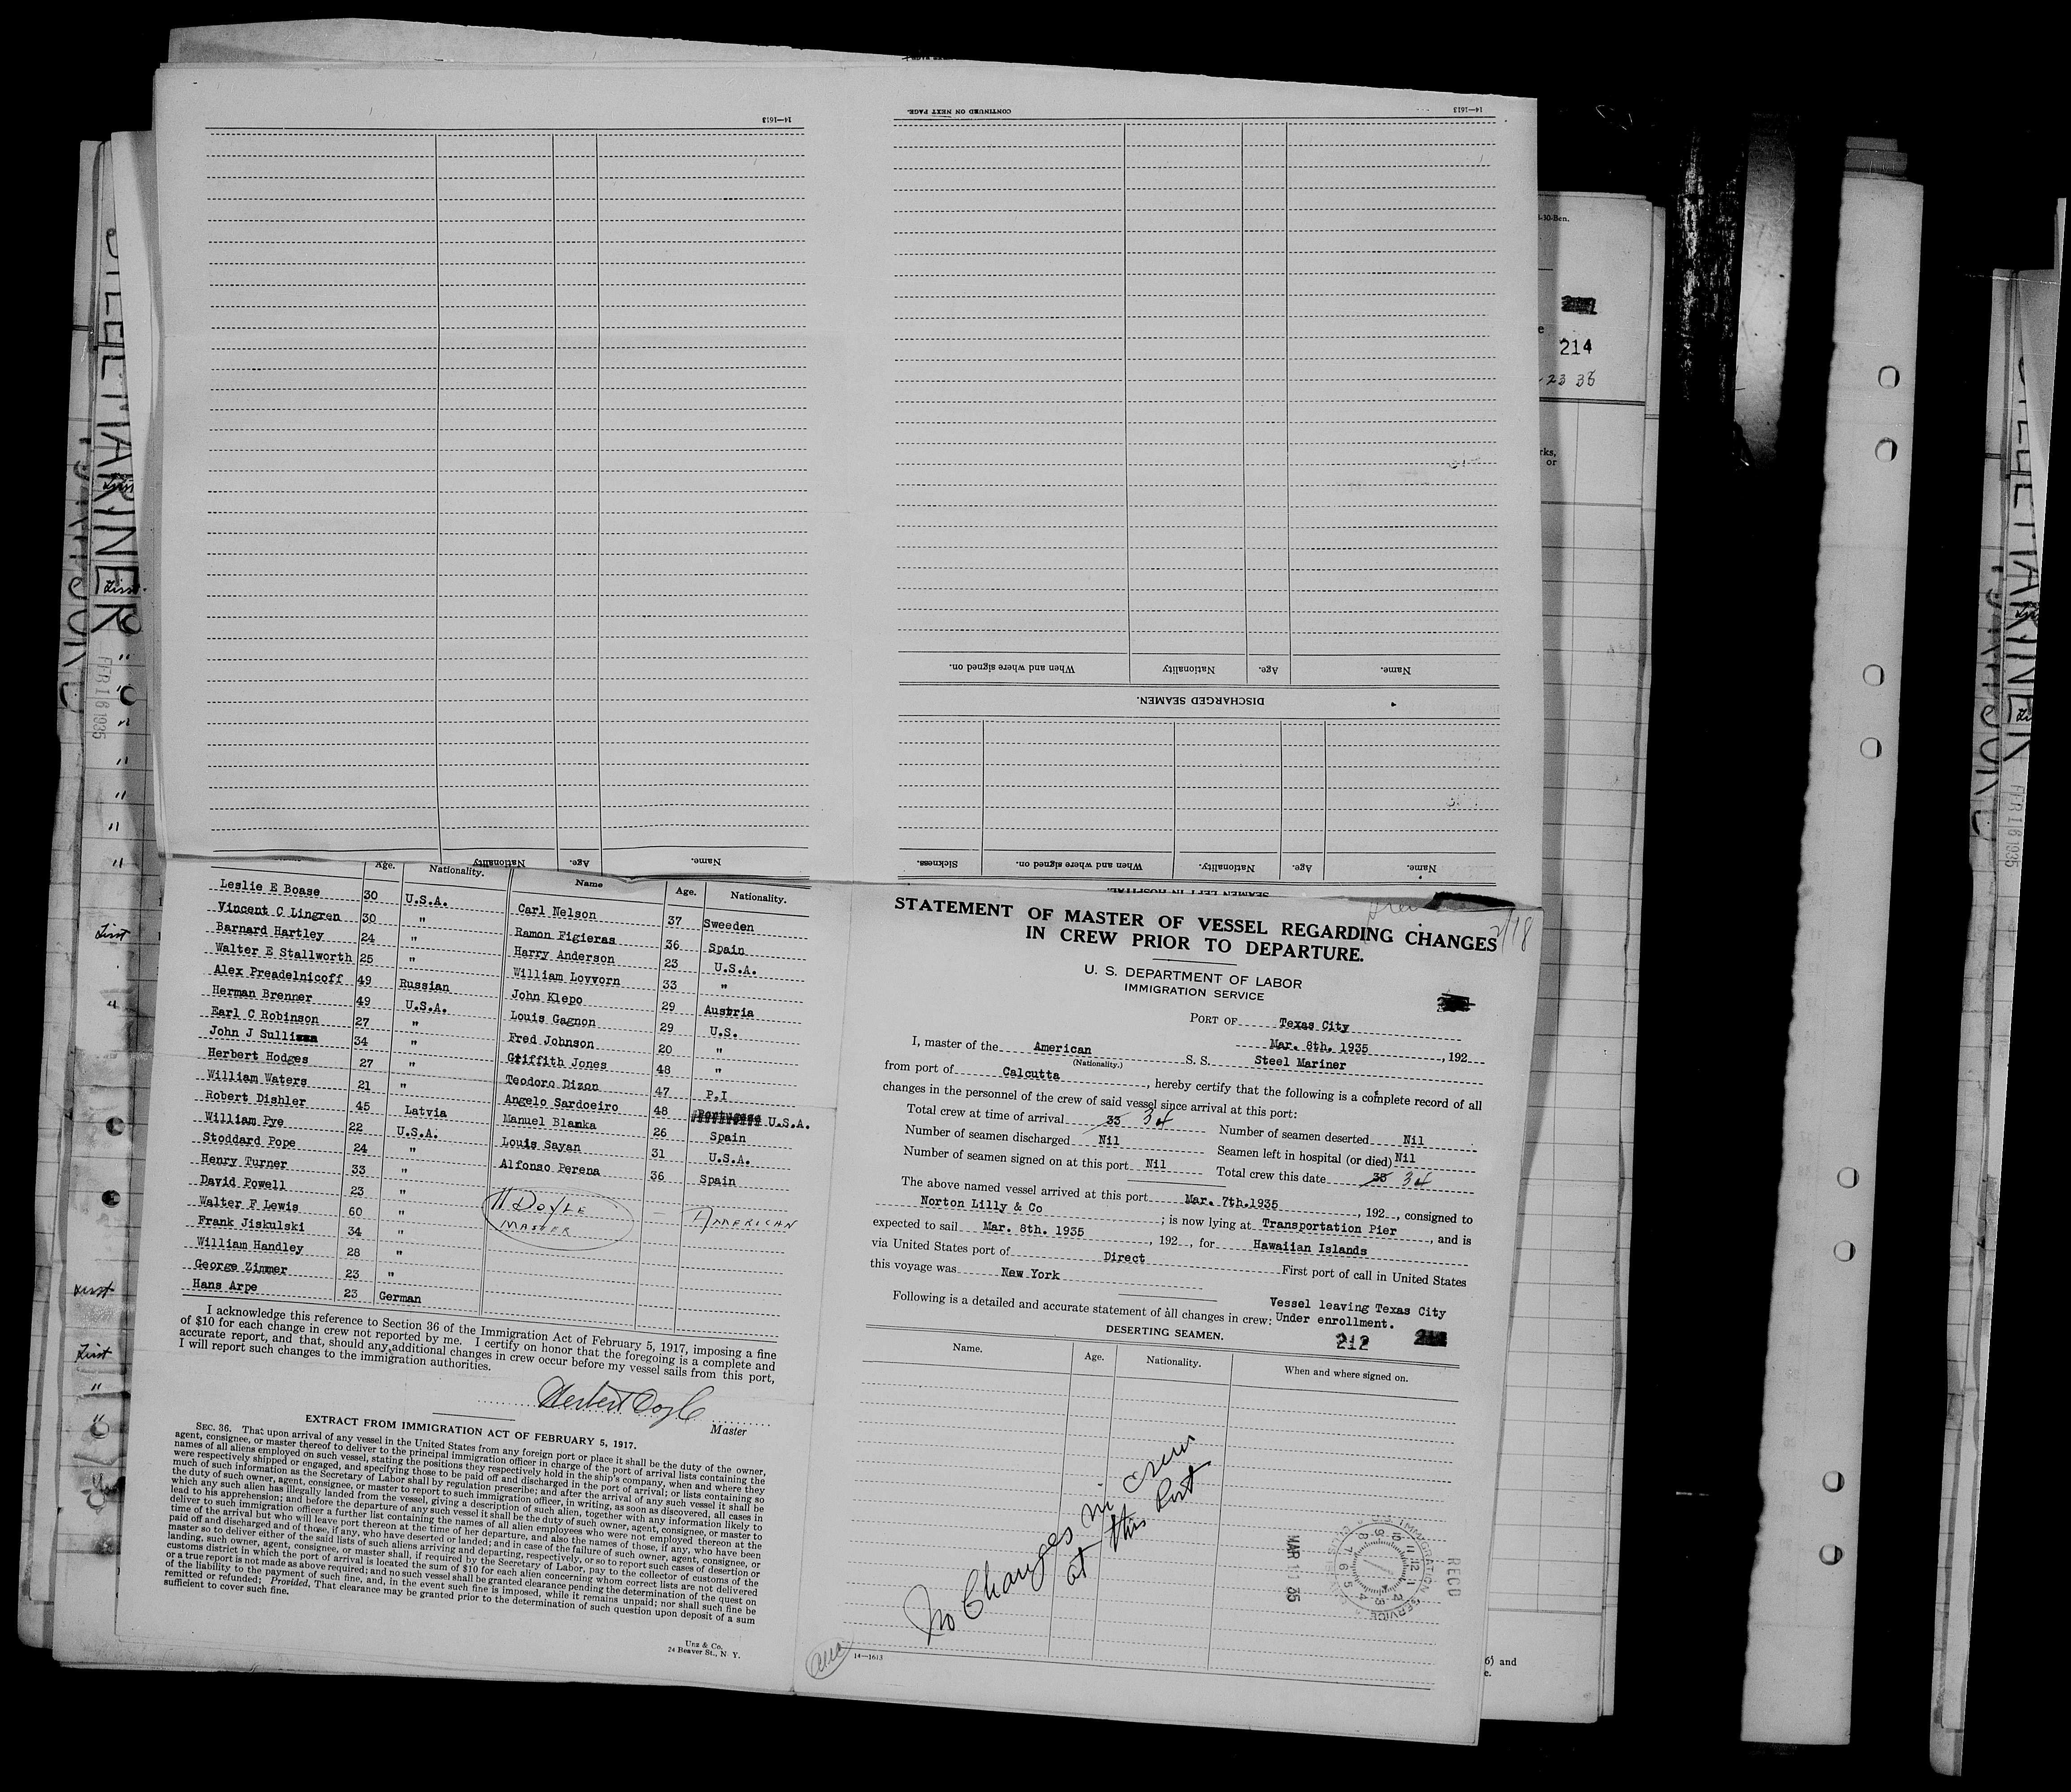 14—1613
CONTINUED ON NEXT PAGE.
14—1613
Name.
Age.
Nationality
When and where signed on.
DISCHARGED SEAMEN.
Name.
Age.
Nationality.
When and where signed on.
Sickness.
SEAMEN LEFT IN HOSPITAL.
Name.
Age.
Nationality
Age. Nationality. Name Age. Nationality.
Leslie E Boase 30 U.S.A. Carl Nelson 37 Sweeden
Vincent C Lingren 30 " Ramon Figieras 36 Spain
Barnard Hartley 24 " Harry Anderson 23 U.S.A.
Walter E Stallworth 25 " William Lovvorn 33 "
Alex Preadelnicoff 49 Russian John Klepo 29 Austria
Herman Brenner 49 U.S.A. Louis Gagnon 29 U.S.
Earl C Robinson 27 " Fred Johnson 20 "
John J Sulli 34 " Griffith Jones 48 "
Herbert Hodges 27 " Teodoro Dizon 47 P.I
William Waters 21 " Angelo Sardoeiro 48 Portugese U.S.A.
Robert Dishler 45 Latvia Manuel Blanka 26 Spain
William Pye 22 U.S.A. Louis Sayan 31 U.S.A.
Stoddard Pope 24 " Alfonso Perena 36 Spain
Henry Turner 33 "
David Powell 23 " H DOYLE — AMERICAN
Walter F Lewis 60 " MASTER
Frank Jiskulski 34 "
William Handley 28 "
George Zimmer 23 "
Hans Arpe 23 German
I acknowledge this reference to Section 36 of the Immigration Act of February 5, 1917, imposing a fine
of $10 for each change in crew not reported by me. I certify on honor that the foregoing is a complete and
accurate report, and that, should any additional changes in crew occur before my vessel sails from this port,
I will report such changes to the immigration authorities.
Herbert Doyle
Master
EXTRACT FROM IMMIGRATION ACT OF FEBRUARY 5, 1917.
SEC. 36. That upon arrival of any vessel in the United States from any foreign port or place it shall be the duty of the owner,
agent, consignee, or master thereof to deliver to the principal immigration officer in charge of the port of arrival lists containing the
names of all aliens employed on such vessel, stating the positions they respectively hold in the ship's company, when and where they
were respectively shipped or engaged, and specifying those to be paid off and discharged in the port of arrival; or lists containing so
much of such information as the Secretary of Labor shall by regulation prescribe; and after the arrival of any such vessel it shall be
the duty of such owner, agent, consignee, or master to report to such immigration officer, in writing, as soon as discovered, all cases in
which any such alien has illegally landed from the vessel, giving a description of such alien, together with any information likely to
lead to his apprehension; and before the departure of any such vessel it shall be the duty of such owner, agent, consignee, or master to
deliver to such immigration officer a further list containing the names of all alien employees who were not employed thereon at the
time of the arrival but who will leave port thereon at the time of her departure, and also the names of those, if any, who have been
paid off and discharged and of those, if any, who have deserted or landed; and in case of the failure of such owner, agent, consignee, or
master so to deliver either of the said lists of such aliens arriving and departing, respectively, or so to report such cases of desertion or
landing, such owner, agent, consignee, or master shall, if required by the Secretary of Labor, pay to the collector of customs of the
customs district in which the port of arrival is located the sum of $10 for each alien concerning whom correct lists are not delivered
or a true report is not made as above required; and no such vessel shall be granted clearance pending the determination of the quest on
of the liability to the payment of such fine, and, in the event such fine is imposed, while it remains unpaid; nor shall such fine be
remitted or refunded; Provided, That clearance may be granted prior to the determination of such question upon deposit of a sum
sufficient to cover such fine.
Unz & Co.
24 Beaver St., N Y.
STATEMENT OF MASTER OF VESSEL REGARDING CHANGES
IN CREW PRIOR TO DEPARTURE.
2/18
U. S. DEPARTMENT OF LABOR
IMMIGRATION SERVICE
PORT OF Texas City
Mar. 8th. 1935, 192
I, master of the American S. S. Steel Mariner
(Nationality.)
from port of Calcutta, hereby certify that the following is a complete record of all
changes in the personnel of the crew of said vessel since arrival at this port:
Total crew at time of arrival 33 34 Number of seamen deserted Nil
Number of seamen discharged Nil Seamen left in hospital (or died) Nil
Number of seamen signed on at this port Nil Total crew this date 33 34
The above named vessel arrived at this port Mar. 7th.1935, 192 , consigned to
Norton Lilly & Co ; is now lying at Transportation Pier, and is
expected to sail Mar. 8th. 1935, 192 , for Hawaiian Islands
via United States port of Direct First port of call in United States
this voyage was New York
Vessel leaving Texas City
Following is a detailed and accurate statement of all changes in crew: Under enrollment.
DESERTING SEAMEN. 212
Name. Age. Nationality. When and where signed on.
No Changes in crew
at this Port
RECD
U.S. IMMIGRATION SERVICE
14—1613
-30-Ben.
214
23 35
rks,
or
6) and
STEEL MARINER
FEB 16 1935
First
First
First
First
First
FEB 16 1935